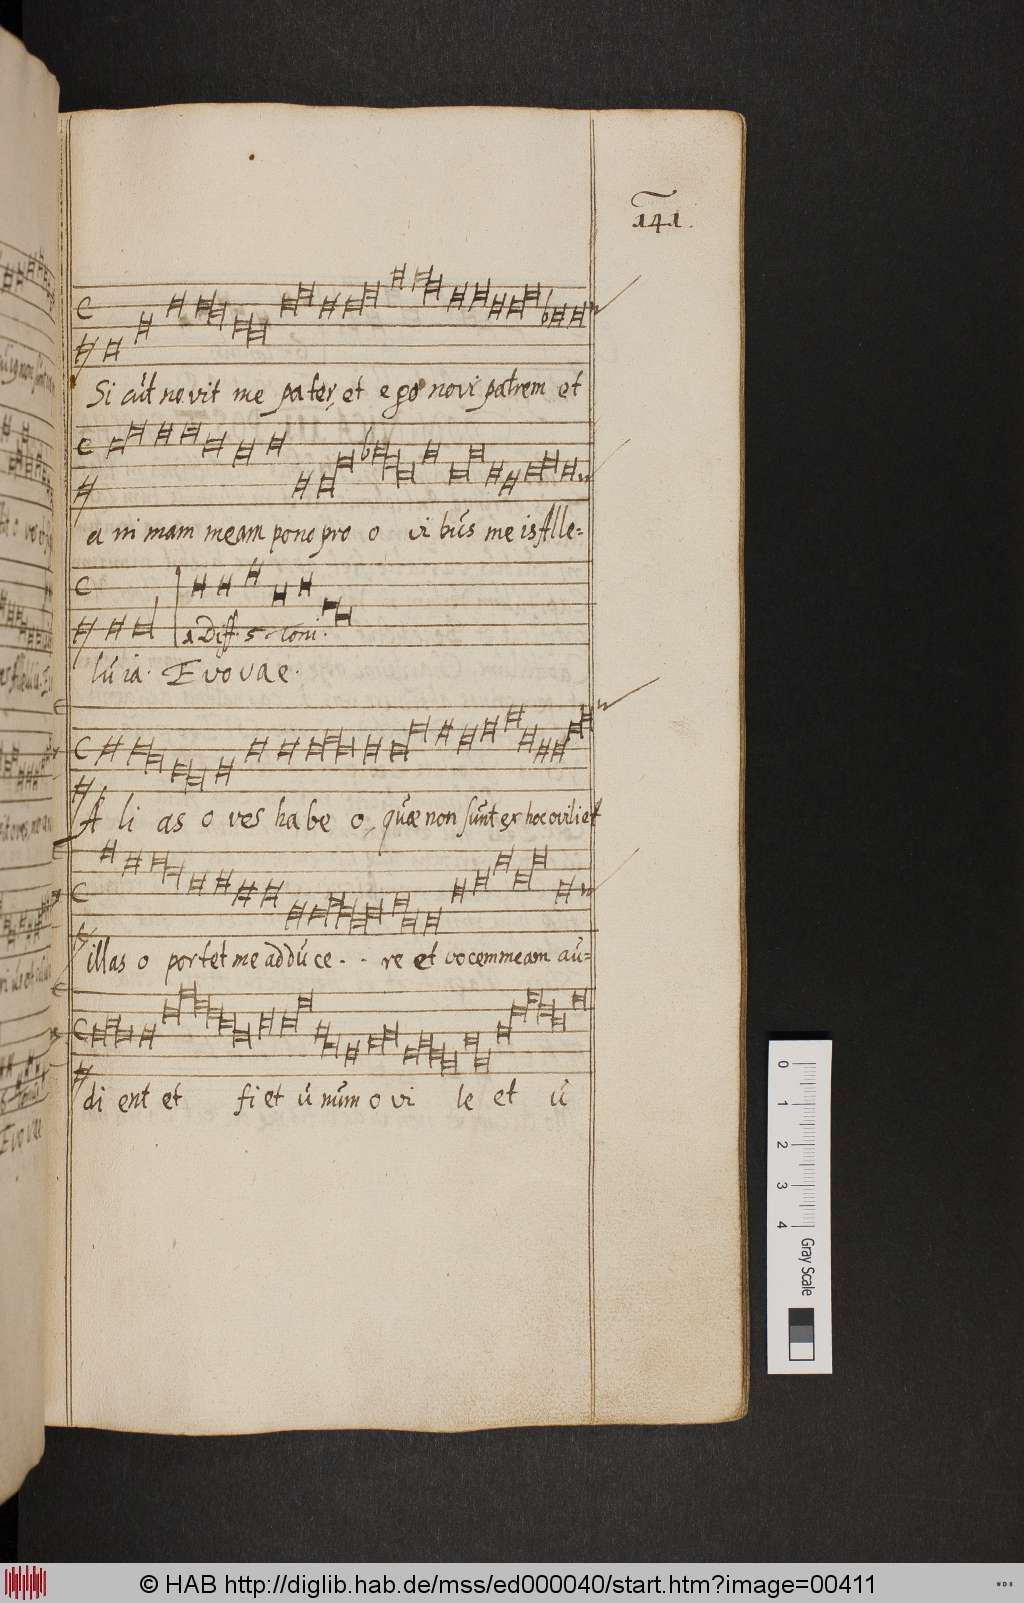 141.
Si cut no vit me pa ter, et e go novi patrem et
a ni mam meam pono pro o vi bus me is Alle=
1 Diff. 5 Toni.
lu ia. Evovae.
A li as o ves habe o, quæ non sunt ex hoc ovili et
illas o portet me adduce - - re et vocem meam au=
di ent et fi et u num o vi le et u
0 1 2 3 4 Gray Scale
© HAB http://diglib.hab.de/mss/ed000040/start.htm?image=00411